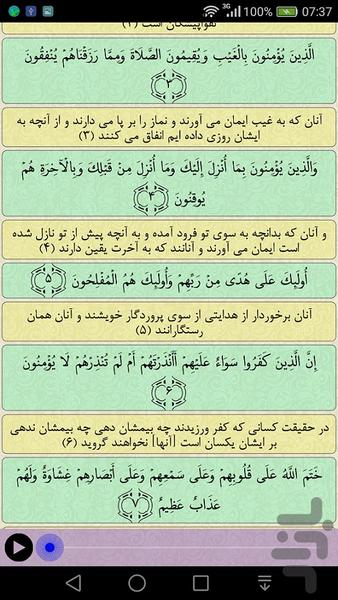 3G 100% 07:37
تقواپیشگان است (۲)
الَّذِينَ يُؤْمِنُونَ بِالْغَيْبِ وَيُقِيمُونَ الصَّلَاةَ وَمِمَّا رَزَقْنَاهُمْ يُنفِقُونَ
﴿۳﴾
آنان که به غیب ایمان می آورند و نماز را بر پا می دارند و از آنچه به
ایشان روزی داده ایم انفاق می کنند (۳)
وَالَّذِينَ يُؤْمِنُونَ بِمَا أُنزِلَ إِلَيْكَ وَمَا أُنْزِلَ مِنْ قَبْلِكَ وَبِالْآخِرَةِ هُمْ
يُوقِنُونَ ﴿۴﴾
و آنان که بدانچه به سوی تو فرود آمده و به آنچه پیش از تو نازل شده
است ایمان می آورند و آنانند که به آخرت یقین دارند (۴)
أُولَئِكَ عَلَى هُدًى مِنْ رَبِّهِمْ وَأُولَئِكَ هُمُ الْمُفْلِحُونَ ﴿۵﴾
آنان برخوردار از هدایتی از سوی پروردگار خویشند و آنان همان
رستگارانند (۵)
إِنَّ الَّذِينَ كَفَرُوا سَوَاءٌ عَلَيْهِمْ أَأَنْذَرْتَهُمْ أَمْ لَمْ تُنْذِرْهُمْ لَا يُؤْمِنُونَ
﴿۶﴾
در حقیقت کسانی که کفر ورزیدند چه بیمشان دهی چه بیمشان ندهی
بر ایشان یکسان است [آنها] نخواهند گروید (۶)
خَتَمَ اللَّهُ عَلَى قُلُوبِهِمْ وَعَلَى سَمْعِهِمْ وَعَلَى أَبْصَارِهِمْ غِشَاوَةٌ وَلَهُمْ
عَذَابٌ عَظِيمٌ ﴿۷﴾